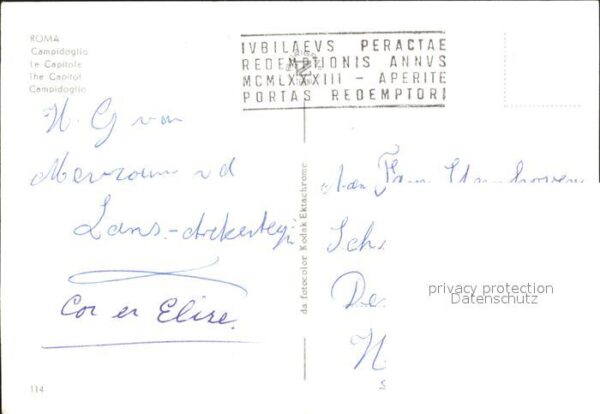 ROMA
Campidoglio
Le Capitole
The Capitol
Campidoglio
IVBILAEVS PERACTAE
REDEMPTIONIS ANNVS
MCMLXXXIII - APERITE
PORTAS REDEMPTORI
H. G van
v d
Cor en Elise.
da fotocolor Kodak Ektachrome
Aan Fam
Sch
De
N
privacy protection
Datenschutz
114